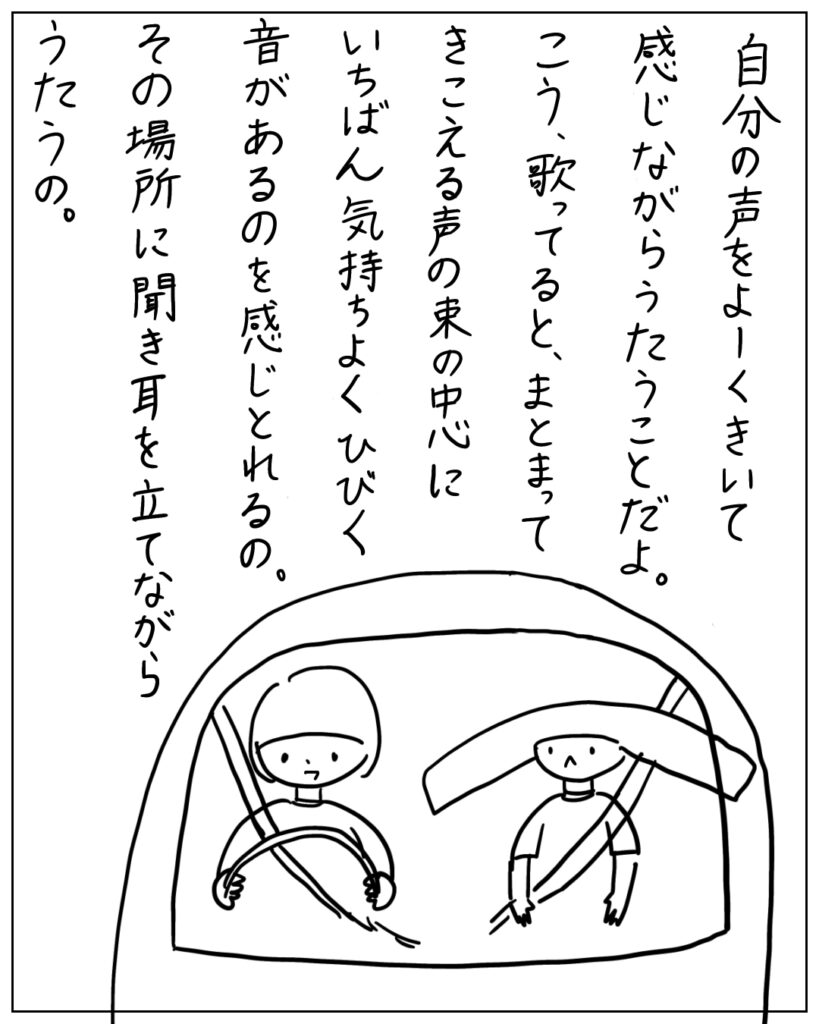 自分の声をよーくきいて
感じながらうたうことだよ。
こう、歌ってると、まとまって
きこえる声の束の中心に
いちばん気持ちよくひびく
音があるのを感じとれるの。
その場所に聞き耳を立てながら
うたうの。